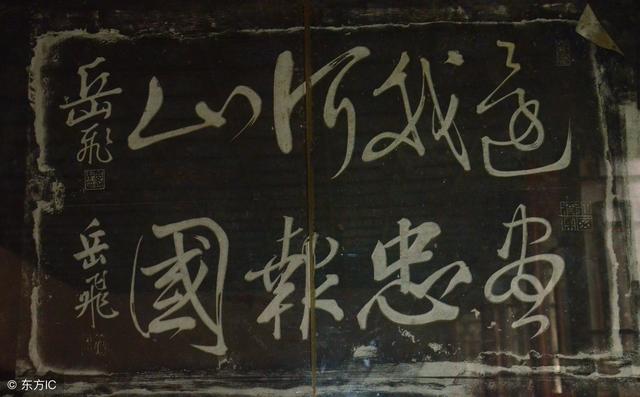 還我河山
岳飛
盡忠報國
岳飛
© 东方IC